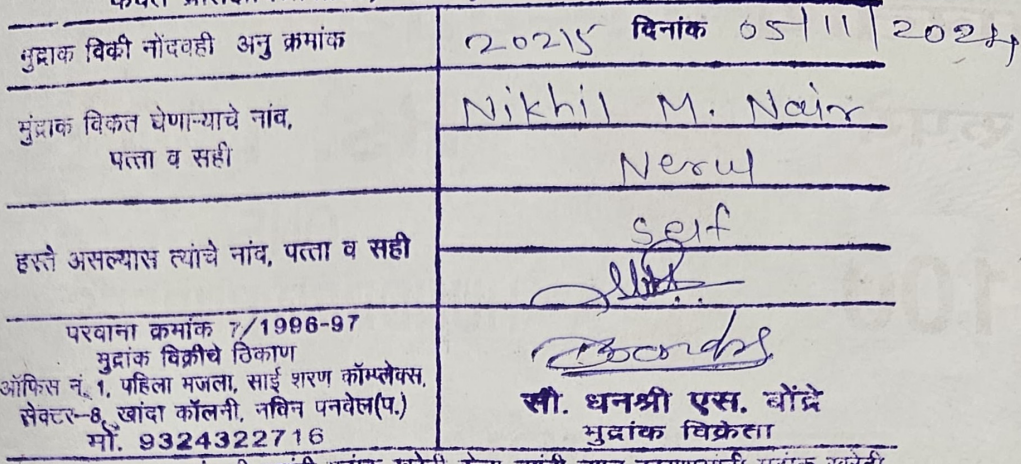 मुद्राक विक्री नोंदवही अनु क्रमांक 20215 दिनांक 05/11/2024
मुंद्राक विकत घेणाऱ्याचे नांव, Nikhil M. Nair
पत्ता व सही Nerul
हस्ते असल्यास त्यांचे नांव, पत्ता व सही self
परवाना क्रमांक 7/1996-97
मुद्रांक विक्रीचे ठिकाण
ऑफिस नं. 1, पहिला मजला, साई शरण कॉम्प्लेक्स,
सेक्टर-8, खांदा कॉलनी, नविन पनवेल(प.)
मों. 9324322716
सौ. धनश्री एस. बोंद्रे
मुद्रांक विक्रेता